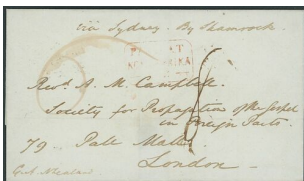 via Sydney. By Shamrock.
Revd. A. M. Campbell
Society for Propagation of the Gospel
in Foreign Parts.
79 Pall Mall
London